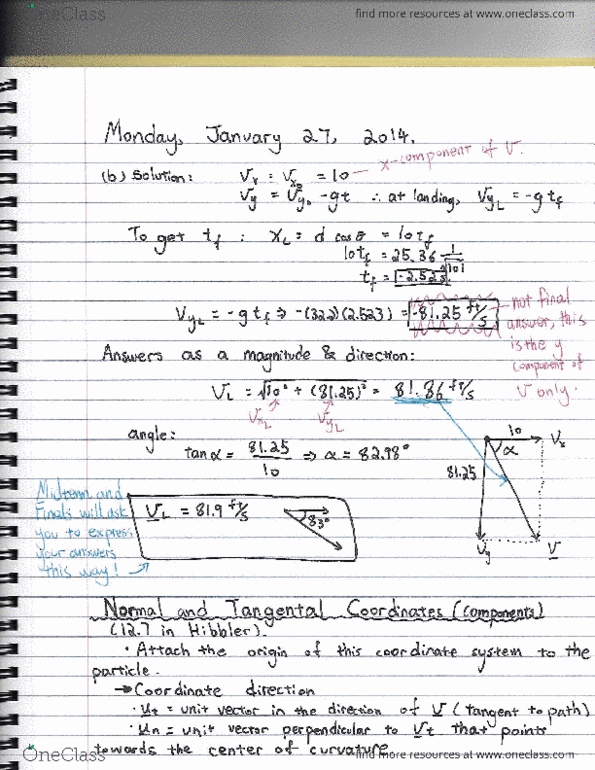 OneClass
find more resources at www.oneclass.com
Monday, January 27, 2014.
x-component of V.
(b) Solution: Vx = Vx₀ = 10
Vy = Vy₀ - gt ∴ at landing, VyL = -g tf
To get tf : XL = d cosθ = 10tf
10tf = 25.36
tf = 2.523
VyL = -g tf ⇒ -(322)(2.523) = -81.25 ft/s
not final answer, this is the y component of V only.
Answers as a magnitude & direction:
VL = √10² + (81.25)² = 81.86 ft/s
VxL VyL
angle:
tanα = 81.25/10 ⇒ α = 82.98°
10 Vx
α
81.25
Vy V
Midterm and
Finals will ask
you to express
your answers
this way!
VL = 81.9 ft/s 83°
Normal and Tangental Coordinates (components)
(12.7 in Hibbler).
· Attach the origin of this coordinate system to the
particle.
→ Coordinate direction
· Ut = unit vector in the direction of V (tangent to path)
· Un = unit vector perpendicular to Ut that points
towards the center of curvature
OneClass
find more resources at www.oneclass.com